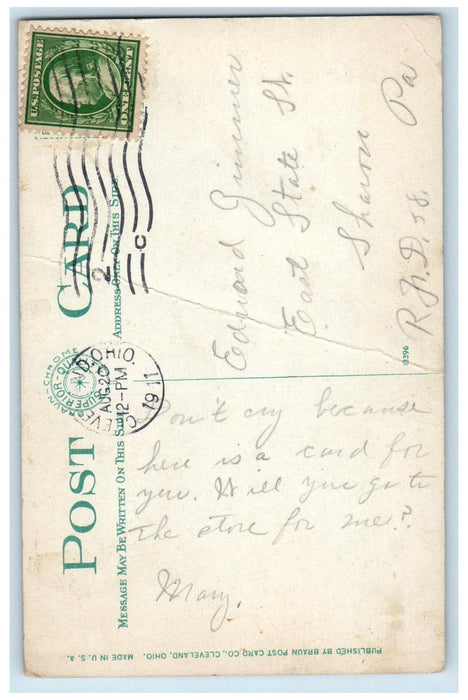 POST CARD
BRAUN-CHROME
SUPERIOR QUALITY
MESSAGE MAY BE WRITTEN ON THIS SIDE
ADDRESS ONLY ON THIS SIDE
U.S. POSTAGE
ONE CENT
CLEVELAND, OHIO.
AUG 20
12-PM
1911
2
C
Don't cry because
here is a card for
you. Will you go to
the store for me?
Mary.
Edward Grimmer
East State St.
Sharon Pa
R.F.D. 58.
3396
PUBLISHED BY BRAUN POST CARD CO., CLEVELAND, OHIO. MADE IN U. S. A.